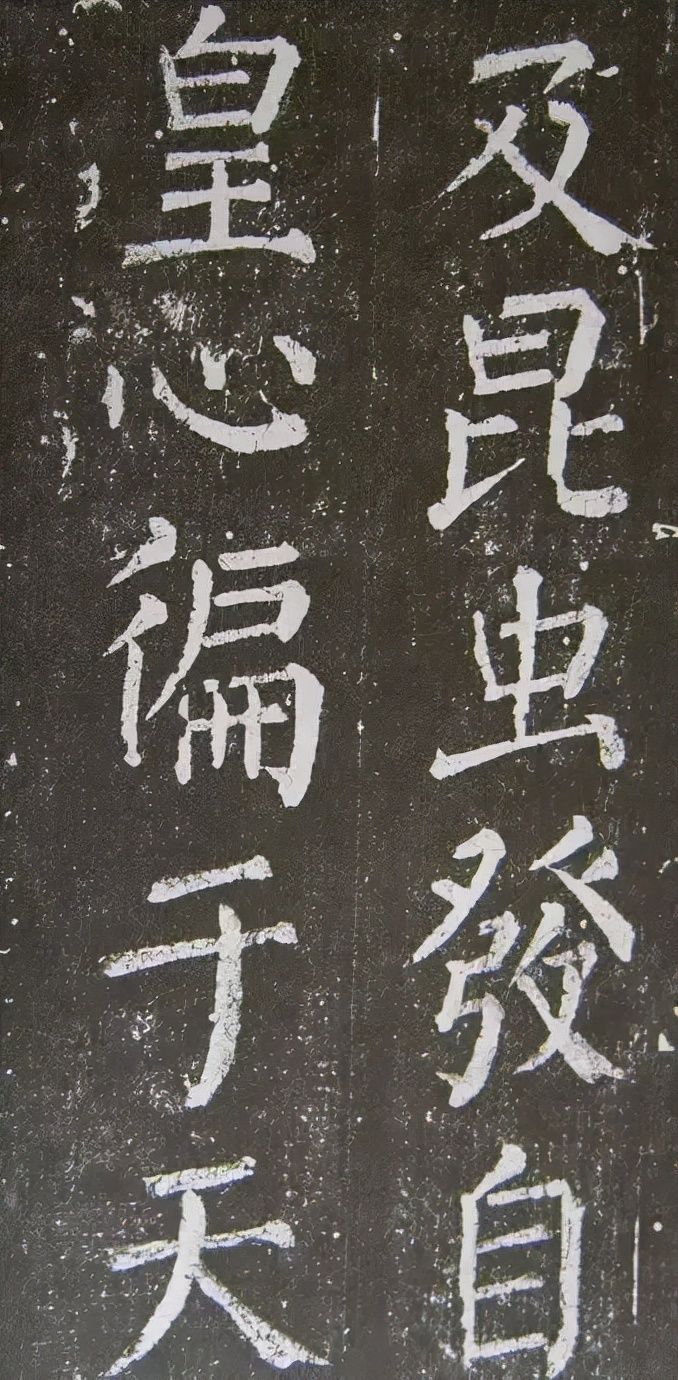 及昆虫發自
皇心徧于天